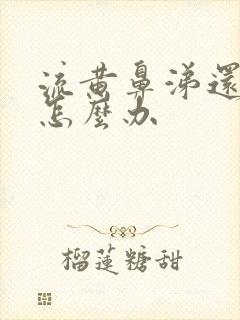 流黄鼻涕還
怎麼办
榴蓮糖甜